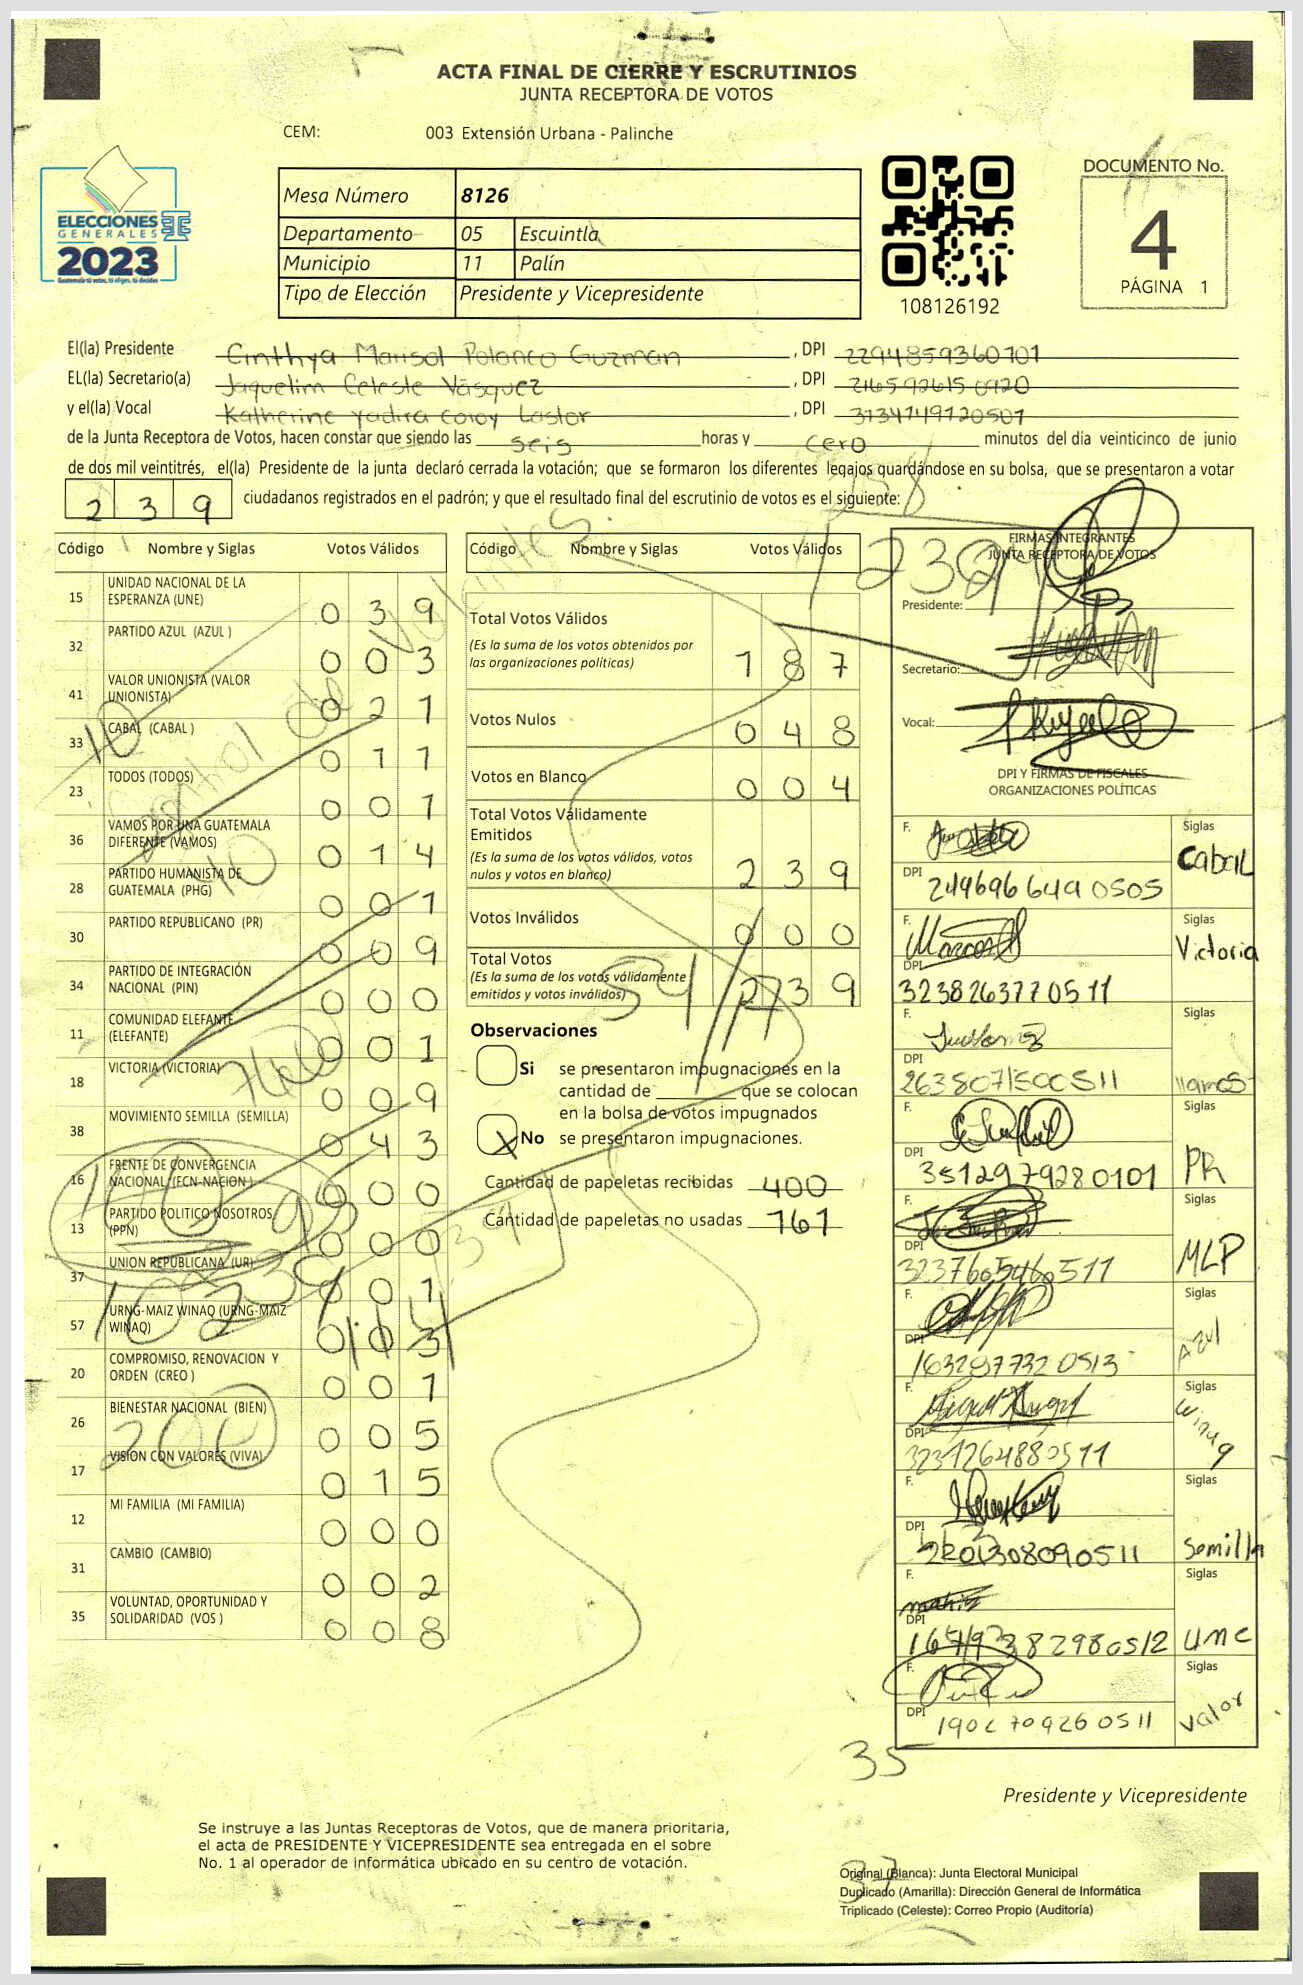 ACTA FINAL DE CIERRE Y ESCRUTINIOS
JUNTA RECEPTORA DE VOTOS
CEM: 003 Extensión Urbana - Palinche
ELECCIONES
GENERALES
2023
Mesa Número 8126
Departamento 05 Escuintla
Municipio 11 Palín
Tipo de Elección Presidente y Vicepresidente
108126192
DOCUMENTO No.
4
PÁGINA 1
El(la) Presidente Cinthya Marisol Polanco Guzman , DPI 2294859360101
EL(la) Secretario(a) Jaquelim Celeste Vásquez , DPI 216592615 0920
y el(la) Vocal Katherine Yadira Coroy Lastor , DPI 3134149120501
de la Junta Receptora de Votos, hacen constar que siendo las seis horas y cero minutos del día veinticinco de junio
de dos mil veintitrés, el(la) Presidente de la junta declaró cerrada la votación; que se formaron los diferentes legajos guardándose en su bolsa, que se presentaron a votar
239 ciudadanos registrados en el padrón; y que el resultado final del escrutinio de votos es el siguiente:
Código Nombre y Siglas Votos Válidos
15 UNIDAD NACIONAL DE LA ESPERANZA (UNE) 039
32 PARTIDO AZUL (AZUL ) 003
41 VALOR UNIONISTA (VALOR UNIONISTA) 021
33 CABAL (CABAL ) 011
23 TODOS (TODOS) 001
36 VAMOS POR UNA GUATEMALA DIFERENTE (VAMOS) 014
28 PARTIDO HUMANISTA DE GUATEMALA (PHG) 001
30 PARTIDO REPUBLICANO (PR) 009
34 PARTIDO DE INTEGRACIÓN NACIONAL (PIN) 000
11 COMUNIDAD ELEFANTE (ELEFANTE) 001
18 VICTORIA (VICTORIA) 009
38 MOVIMIENTO SEMILLA (SEMILLA) 043
16 FRENTE DE CONVERGENCIA NACIONAL (FCN-NACION ) 000
13 PARTIDO POLITICO NOSOTROS (PPN) 000
37 UNION REPUBLICANA (UR) 001
57 URNG-MAIZ WINAQ (URNG-MAIZ WINAQ) 003
20 COMPROMISO, RENOVACION Y ORDEN (CREO ) 001
26 BIENESTAR NACIONAL (BIEN) 005
17 VISION CON VALORES (VIVA) 015
12 MI FAMILIA (MI FAMILIA) 000
31 CAMBIO (CAMBIO) 002
35 VOLUNTAD, OPORTUNIDAD Y SOLIDARIDAD (VOS ) 008
Código Nombre y Siglas Votos Válidos
Total Votos Válidos
(Es la suma de los votos obtenidos por
las organizaciones políticas) 187
Votos Nulos 048
Votos en Blanco 004
Total Votos Válidamente
Emitidos
(Es la suma de los votos válidos, votos
nulos y votos en blanco) 239
Votos Inválidos 000
Total Votos
(Es la suma de los votos válidamente
emitidos y votos inválidos) 239
Observaciones
Si se presentaron impugnaciones en la
cantidad de que se colocan
en la bolsa de votos impugnados
X No se presentaron impugnaciones.
Cantidad de papeletas recibidas 400
Cantidad de papeletas no usadas 161
FIRMAS INTEGRANTES
JUNTA RECEPTORA DE VOTOS
Presidente:
Secretario:
Vocal:
DPI Y FIRMAS DE FISCALES
ORGANIZACIONES POLÍTICAS
F. Siglas Cabal
DPI 249696 649 0505
F. Siglas Victoria
DPI 3238263770511
F. Siglas
DPI 2638071500511
F. Siglas PR
DPI 3512979280101
F. Siglas MLP
DPI 3237605460511
F. Siglas Azul
DPI 163297732 0513
F. Siglas Winaq
DPI 3231264880511
F. Siglas Semilla
DPI
F. Siglas une
DPI
F. Siglas Valor
DPI
35
Presidente y Vicepresidente
Se instruye a las Juntas Receptoras de Votos, que de manera prioritaria,
el acta de PRESIDENTE Y VICEPRESIDENTE sea entregada en el sobre
No. 1 al operador de informática ubicado en su centro de votación.
37
Original (Blanca): Junta Electoral Municipal
Duplicado (Amarilla): Dirección General de Informática
Triplicado (Celeste): Correo Propio (Auditoría)